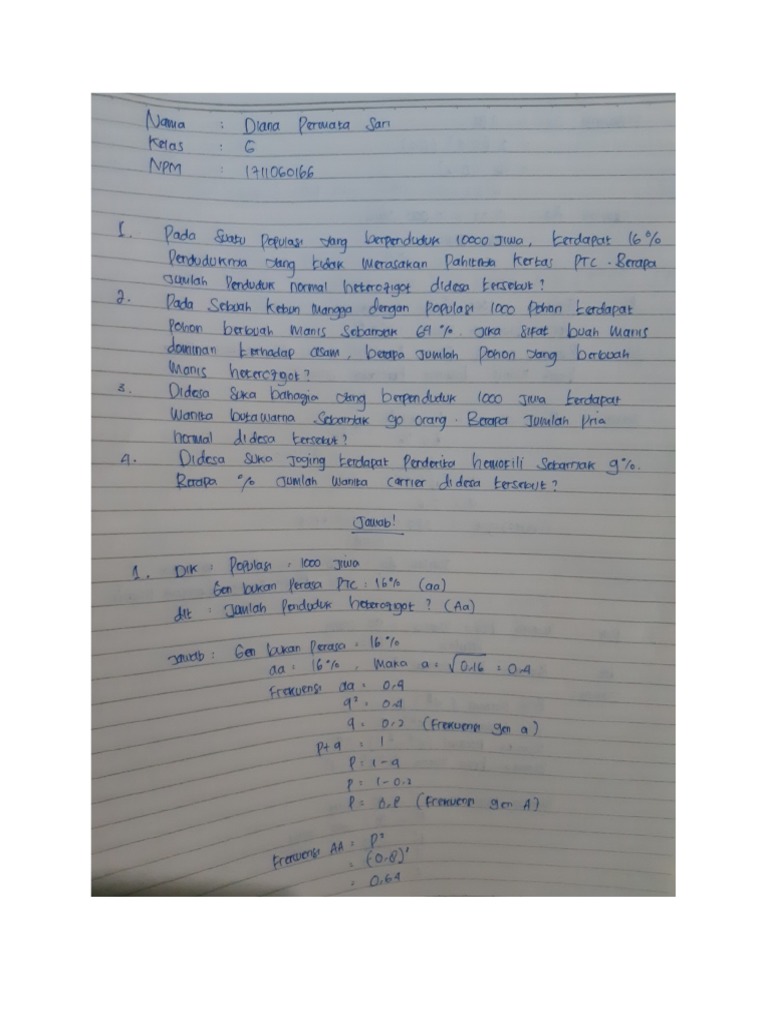 Nama : Diana Permata Sari
Kelas : G
NPM : 1711060166
1. Pada Suatu Populasi yang berpenduduk 10000 Jiwa, terdapat 16%
Penduduknya yang tidak merasakan Pahitnya Kertas PTC. Berapa
Jumlah Penduduk normal heterozigot didesa tersebut?
2. Pada Sebuah Kebun Mangga dengan Populasi 1000 Pohon terdapat
Pohon berbuah Manis Sebanyak 64%. Jika Sifat buah Manis
dominan terhadap asam, berapa Jumlah Pohon yang berbuah
Manis heterozigot?
3. Didesa Suka bahagia yang berpenduduk 1000 Jiwa terdapat
Wanita butawarna Sebanyak 90 orang. Berapa Jumlah Pria
normal didesa tersebut?
4. Didesa Suka Joging terdapat Penderita hemofili Sebanyak 9%.
Berapa % Jumlah Wanita Carrier didesa tersebut?
Jawab!
1. Dik : Populasi : 1000 Jiwa
Gen bukan Perasa PTC : 16% (aa)
dit : Jumlah Penduduk heterozigot? (Aa)
Jawab : Gen bukan Perasa = 16%
aa = 16%, Maka a = √0.16 = 0.4
Frekuensi aa = 0.4
q² = 0.4
q = 0.2 (Frekuensi gen a)
P+q = 1
P = 1-q
P = 1-0.2
P = 0.8 (Frekuensi gen A)
Frekuensi AA = P²
= (0.8)²
= 0.64